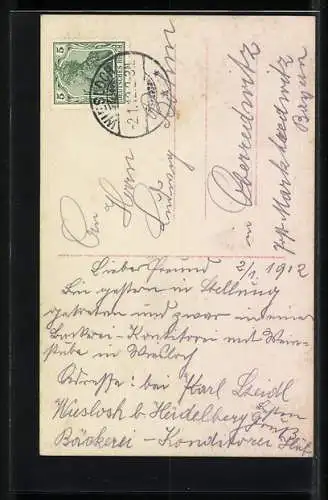 5
5
DEUTSCHES REICH
WIESLOCH
2.1.12
An Herrn
Ludwig Böhm
in Oberredwitz
Post Marktredwitz
Bayern
Lieber Freund 2/1. 1912
Bin gestern in Stellung
getreten und zwar in einer
Bäckerei-Konditorei mit Wein-
stube in Wiesloch
Adresse: bei Karl
Wiesloch b. Heidelberg
Bäckerei-Konditorei
Besten
Gruß